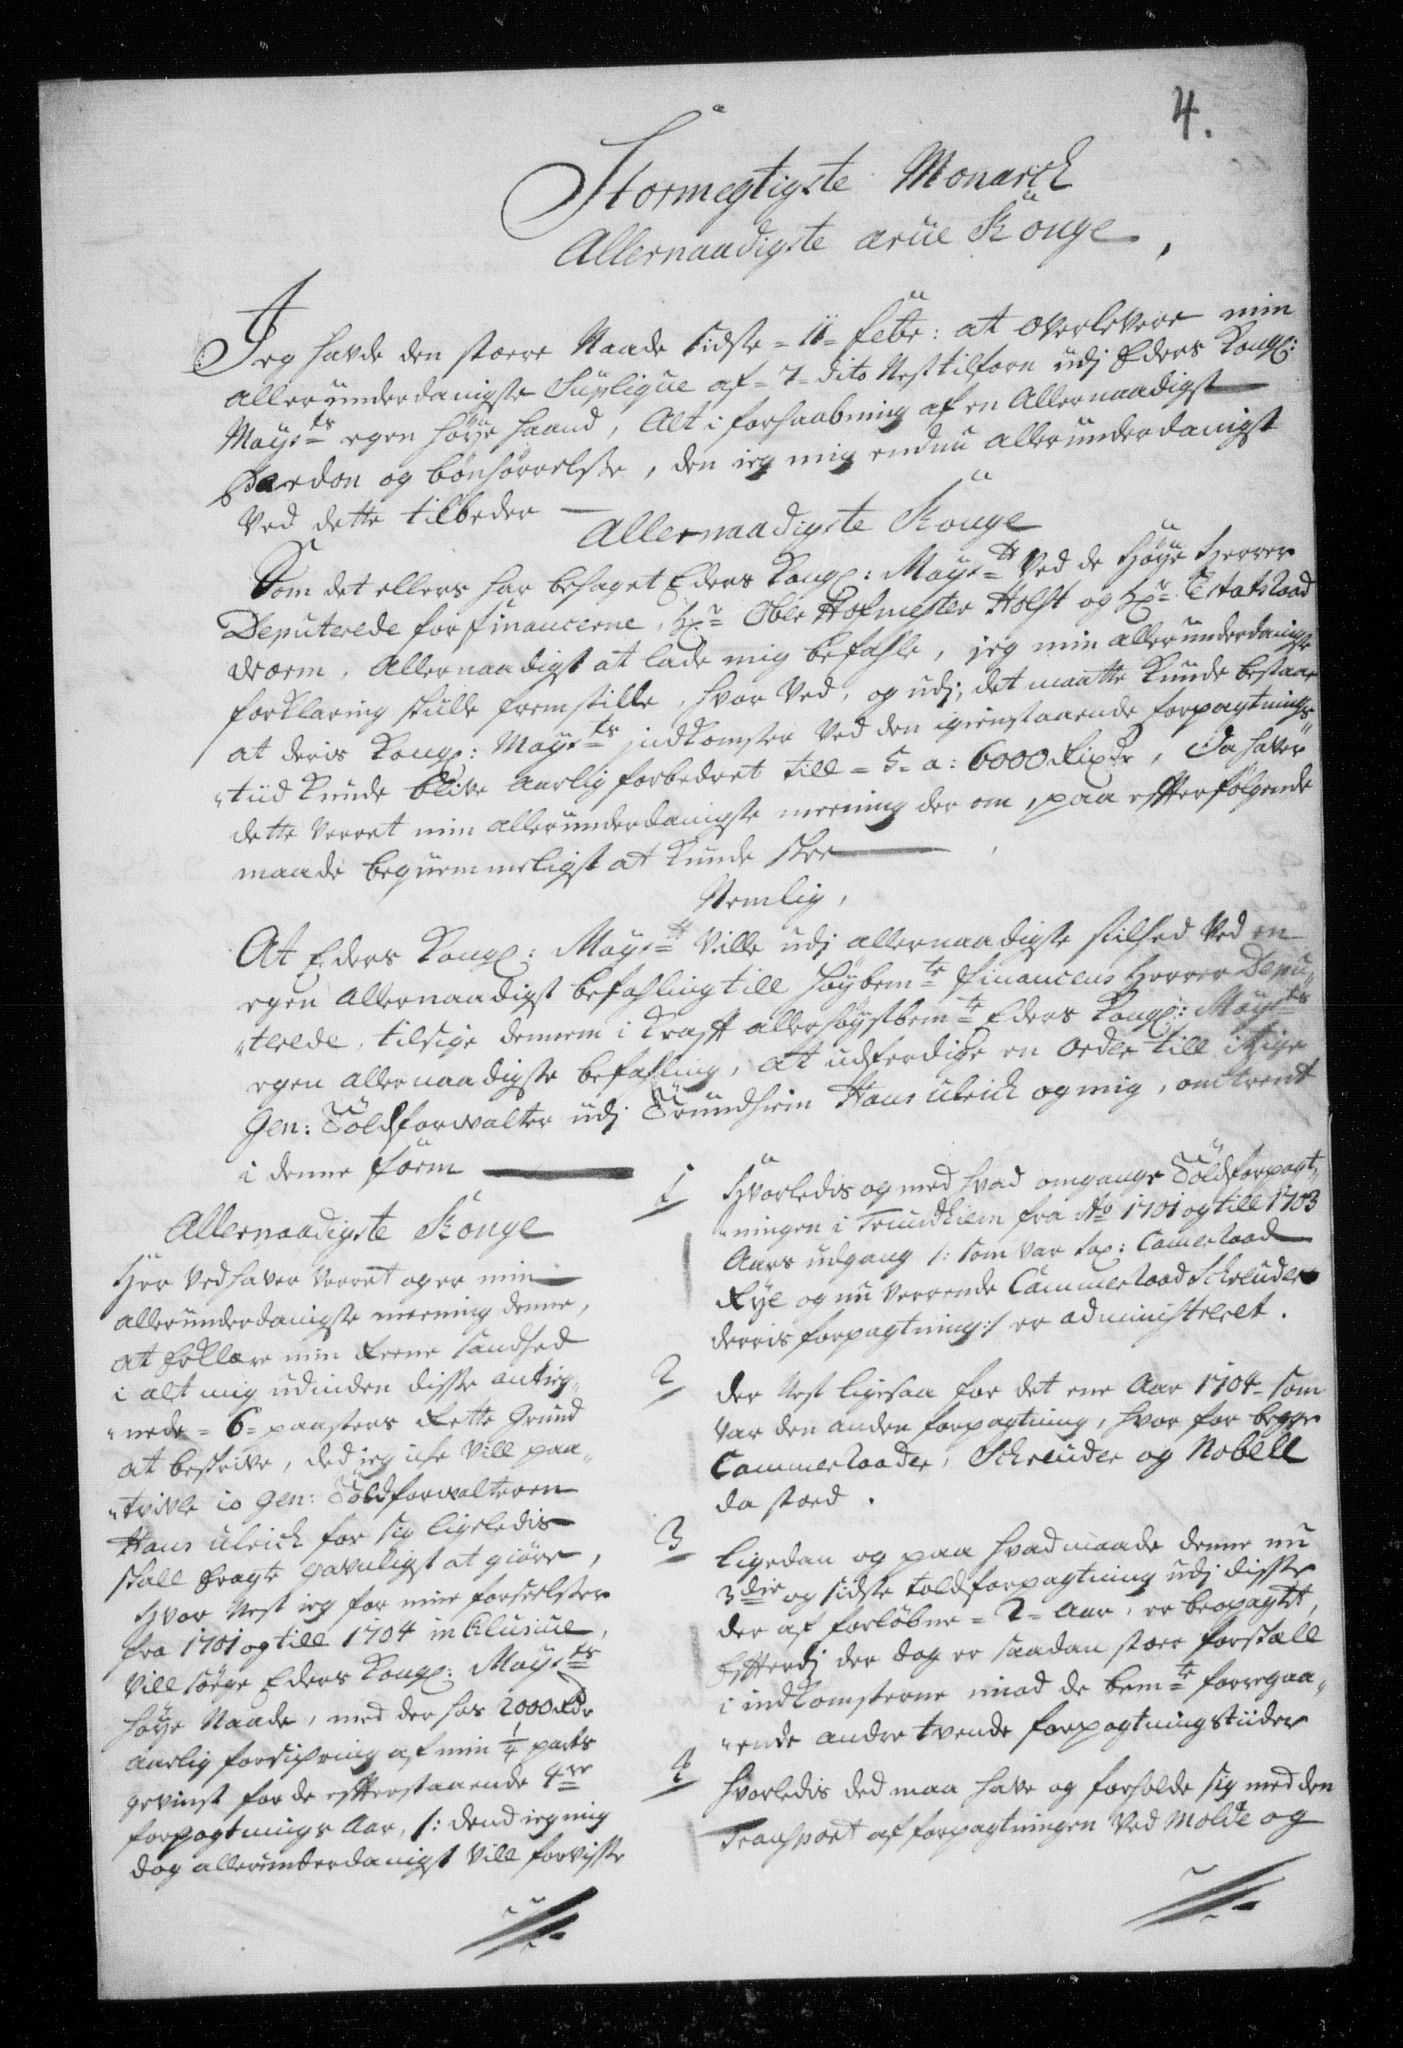 4.
Stormegtigste Monarch
Allernaadigste arfue Konge,
Jeg hafde den stoere Naade sidste = 11 = febr: at overlevere min
allerunderdanigste Suplique af = 7 = dito Nest tilforn udj Eders Kongl:
Mayst:s egen høye haand, Alt i forhaabning af en Allernaadigst
Pardon og bønhørrelsse, den jeg mig endnu allerunderdanigst
Ved dette tilbeder —
Allernaadigste Konge
Som det ellers har behaget Eders Kongl: Mayst:t Ved de Høye Herrer
Deputerede for financerne, Hr Ober Hofmester Holst og Hr Etatsraad
Worm, Allernaadigst at lade mig befahle, jeg min allerunderdanigste
forklaring skulle fremstille, hvor Ved, og udj, det maatte Kunde bestaae
at deris Kongl: Mayst:s indkomster Ved den igienstaaende forpagtnings
tiid Kunde blive Aarlig forbedret till = 5 = a: 6000 Rixdr, Da haver
dette Verret min allerunderdanigste meening der om, paa effterfølgende
maade bequemmeligst at Kunde skee —
Nemlig,
At Eders Kongl: Mayst:t Ville udj allernaadigste stilhed Ved en
egen Allernaadigst befahling till høybemte financens Herrer Depu
terede, tilsige dennem i Krafft allerhøystbemte Eders Kongl: Mayst:s
egen allernaadigste befahling, at udferdige en Order till itzige
Gen: Toldforvalter udj Trundhiem Hans Ulrich og mig, omtrent
i denne form —
Allernaadigste Konge
Her Ved haver Verret og er min
allerunderdanigste meening denne,
at forklare min Reene sandhed
i alt mig udinden disse anteg
nede = 6 = paasters Rette Grund
at beskrive, ded jeg iche Vill paa
tvivle io Gen: Toldforvalteren
Hans Ulrich for sig ligeledis
skall bragte gavnligst at giøre,
Hvor Nest jeg for mine forseelsser
fra 1701 og till 1704 inklusive,
Vill søge Eders Kongl: Mayst:s
høye Naade, med der hos 2000 Rdr
Aarlig forsichring af min 1/4 parts
gevinst for de effterstaaende 4re
forpagtnings Aar, /: dend jeg mig
dog allerunderdanigst Vill forvisse
1 Hvorledis og med hvad omgange Toldforpagt
ningen i Trundhiem fra Ao 1701 og till 1703
Aars udgang /: som var Sal: Camerraad
Rye og nu Verrende Cammerraad Schreuder
derris forpagtning :/ er administreret.
2 der Nest ligesaa for det ene Aar 1704 som
var den anden forpagtning, hvor for begge
Cammerraader, Schreuder og Nobell
da stoed.
3 ligedan og paa hvad maade denne nu
3die og sidste toldforpagtning udj disse
der af forløbne = 2 = Aar, er beopagtet,
Efftterdj der dog er saadan stoer forskall
i indkomsterne imod de bemte forregaa
ende andre tvende forpagtningstiider
4 hvorledis ded maa have og forholde sig med den
Transport af forpagtningen Ved Molde og